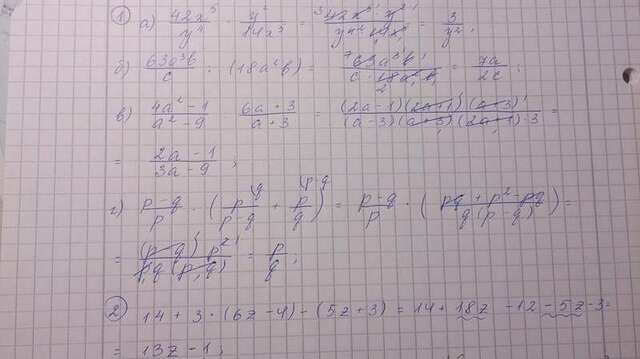 ① а) 42x⁵/y⁴ · y²/14x⁵ = 42x⁵ · y²/y⁴ · 14x⁵ = 3/y²;
б) 63a³b/c : (18a²b) = 63a³b/c · 18a²b = 7a/2c;
в) 4a² - 1/a² - 9 : 6a + 3/a + 3 = (2a - 1)(2a + 1)(a + 3)/(a - 3)(a + 3)(2a + 1) · 3 =
= 2a - 1/3a - 9;
г) p - q/p · (p/p - q + p/q) = p - q/p · (pq + p² - pq/q(p - q)) =
= (p - q) p²/pq(p - q) = p/q;
② 14 + 3 · (6z - 4) - (5z + 3) = 14 + 18z - 12 - 5z - 3 =
= 13z - 1;